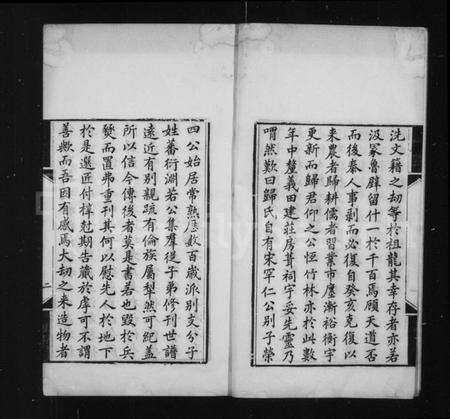 洗文籍之刼等於祖龍其幸存者亦若
汲冢魯壁留什一於千百焉顧天道否
而後泰人事剥而必復自癸亥克復以
來農者歸耕儒者習業市廛漸裕衡宇
更新而歸君仰之公恆竹林亦於此數
年中釐義田建莊房葺祠宇妥先靈乃
喟然歎曰歸氏自有宋罕仁公別子榮
四公始居常熟歷數百歲派別支分子
姓蕃衍淵若公集羣從子弟修刊世譜
遠近有別親疏有倫族屬犂然可紀蓋
所以信今傳後者莫是書若也毀於兵
燹而置弗重刊其何以慰先人於地下
於是選匠付梓尅期告藏於虖可不謂
善歟而吾因有感焉大刼之來造物者